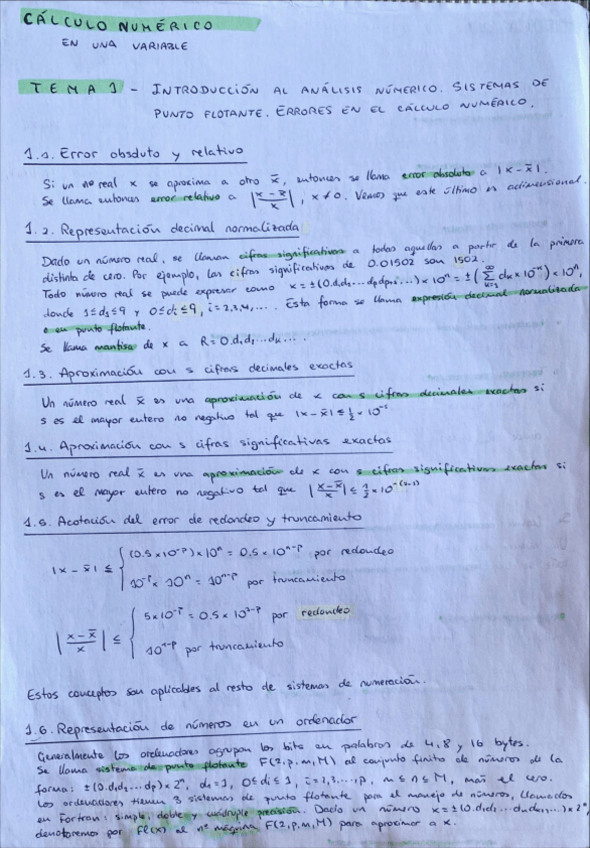 CÁLCULO NUMÉRICO
EN UNA VARIABLE
TEMA 1 - INTRODUCCIÓN AL ANÁLISIS NÚMERICO. SISTEMAS DE
PUNTO FLOTANTE. ERRORES EN EL CÁLCULO NUMÉRICO.
1.1. Error absoluto y relativo
Si un nº real x se aproxima a otro x̄, entonces se llama error absoluto a |x-x̄|.
Se llama entonces error relativo a |x-x̄/x|, x≠0. Vemos que este último es adimensional.
1.2. Representación decimal normalizada
Dado un número real, se llaman cifras significativas a todas aquellas a partir de la primera
distinta de cero. Por ejemplo, las cifras significativas de 0.01502 son 1502.
Todo número real se puede expresar como x = ±(0.d₁d₂...dpdp+1...)×10ⁿ = ±(∑ dk×10⁻ᵏ)×10ⁿ,
donde 1≤d₁≤9 y 0≤di≤9, i=2,3,4,... . Esta forma se llama expresión decimal normalizada
o en punto flotante.
Se llama mantisa de x a R = 0.d₁d₂...dk... .
1.3. Aproximación con s cifras decimales exactas
Un número real x̄ es una aproximación de x con s cifras decimales exactas si
s es el mayor entero no negativo tal que |x-x̄| ≤ ½×10⁻ˢ
1.4. Aproximación con s cifras significativas exactas
Un número real x̄ es una aproximación de x con s cifras significativas exactas si
s es el mayor entero no negativo tal que |x-x̄/x| ≤ ½×10⁻⁽ˢ⁻¹⁾
1.5. Acotación del error de redondeo y truncamiento
|x-x̄| ≤ { (0.5×10⁻ᵖ)×10ⁿ = 0.5×10ⁿ⁻ᵖ por redondeo
10⁻ᵖ×10ⁿ = 10ⁿ⁻ᵖ por truncamiento
|x-x̄/x| ≤ { 5×10⁻ᵖ = 0.5×10¹⁻ᵖ por redondeo
10¹⁻ᵖ por truncamiento
Estos conceptos son aplicables al resto de sistemas de numeración.
1.6. Representación de números en un ordenador
Generalmente los ordenadores agrupan los bits en palabras de 4, 8 y 16 bytes.
Se llama sistema de punto flotante F(2,p,m,M) al conjunto finito de números de la
forma: ±(0.d₁d₂...dp)×2ⁿ, d₁=1, 0≤di≤1, i=2,3,...,p, m≤n≤M, más el cero.
Los ordenadores tienen 3 sistemas de punto flotante para el manejo de números, llamados
en Fortran: simple, doble y cuádruple precisión. Dado un número x = ±(0.d₁d₂...dkdk+1...)×2ⁿ,
denotaremos por fl(x) al nº máquina F(2,p,m,M) para aproximar a x.